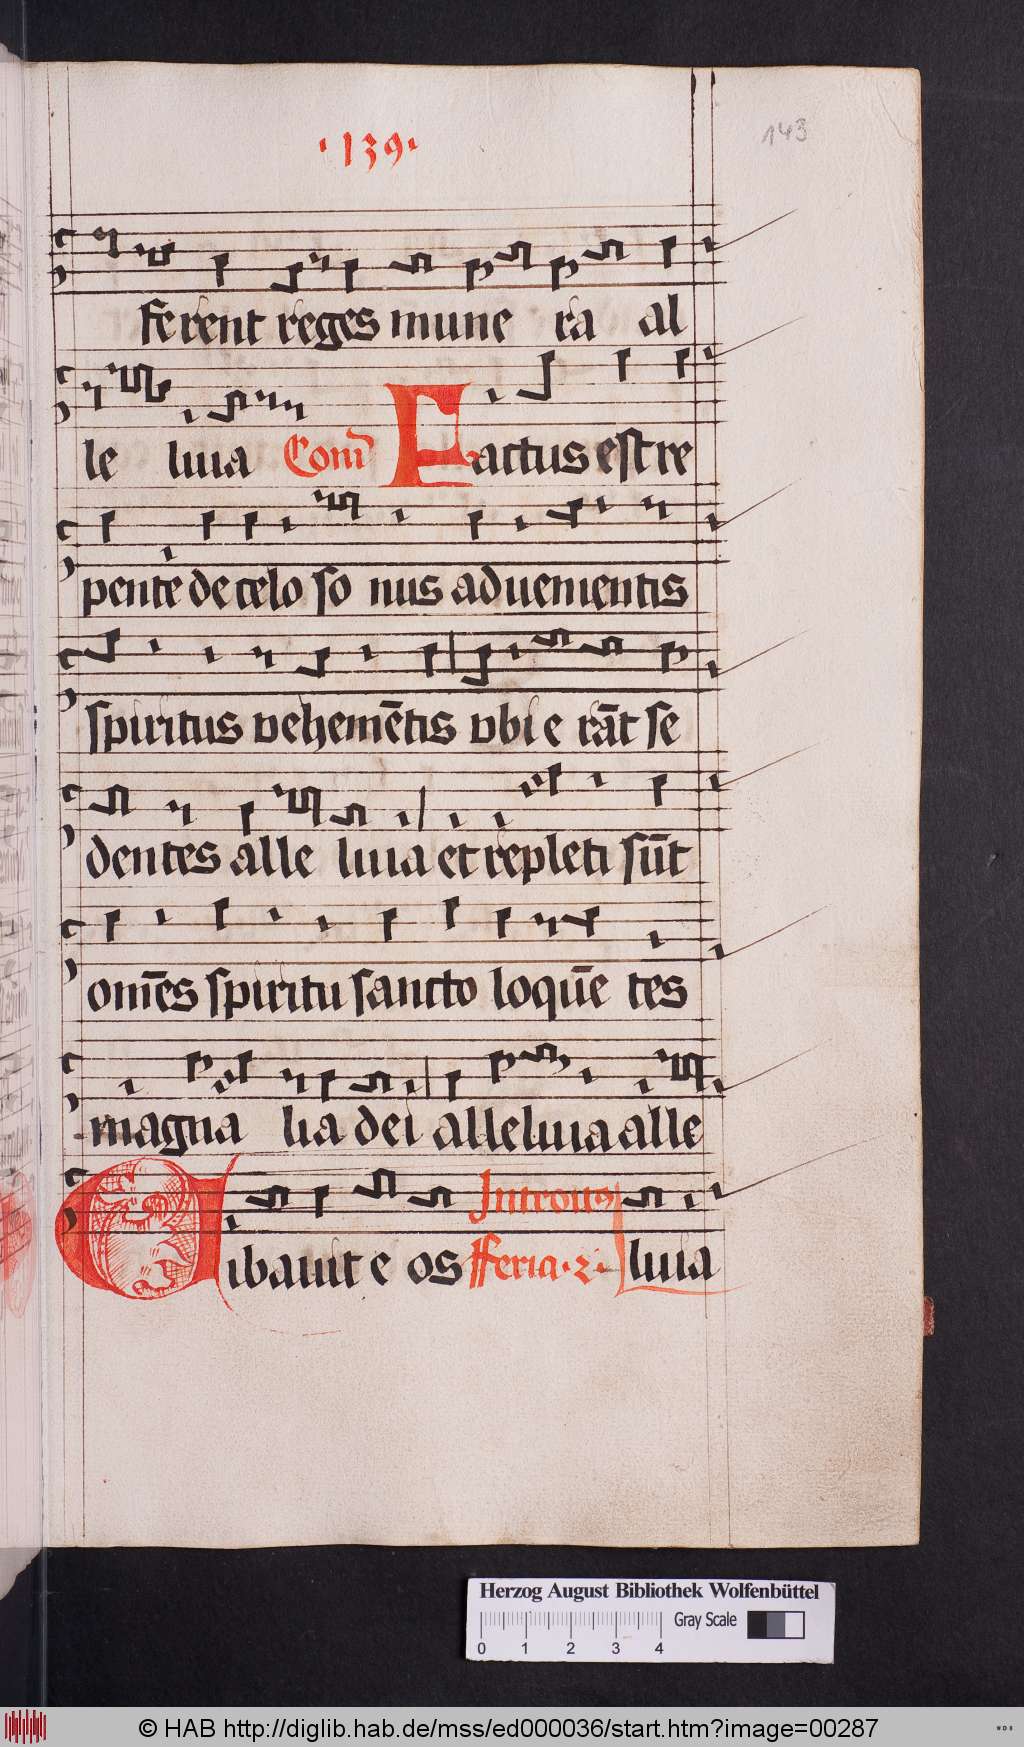 ·139·
143
ferent reges mune ra al
le luia Com̄ Factus est re
pente de celo so nus aduenientis
spiritus vehemētis vbi e rāt se
dentes alle luia et repleti sūt
om̄es spiritu sancto loquē tes
magna lia dei alleluia alle
Introitꝯ luia
Cibauit e os fferia·2·
Herzog August Bibliothek Wolfenbüttel
Gray Scale
0 1 2 3 4
© HAB http://diglib.hab.de/mss/ed000036/start.htm?image=00287